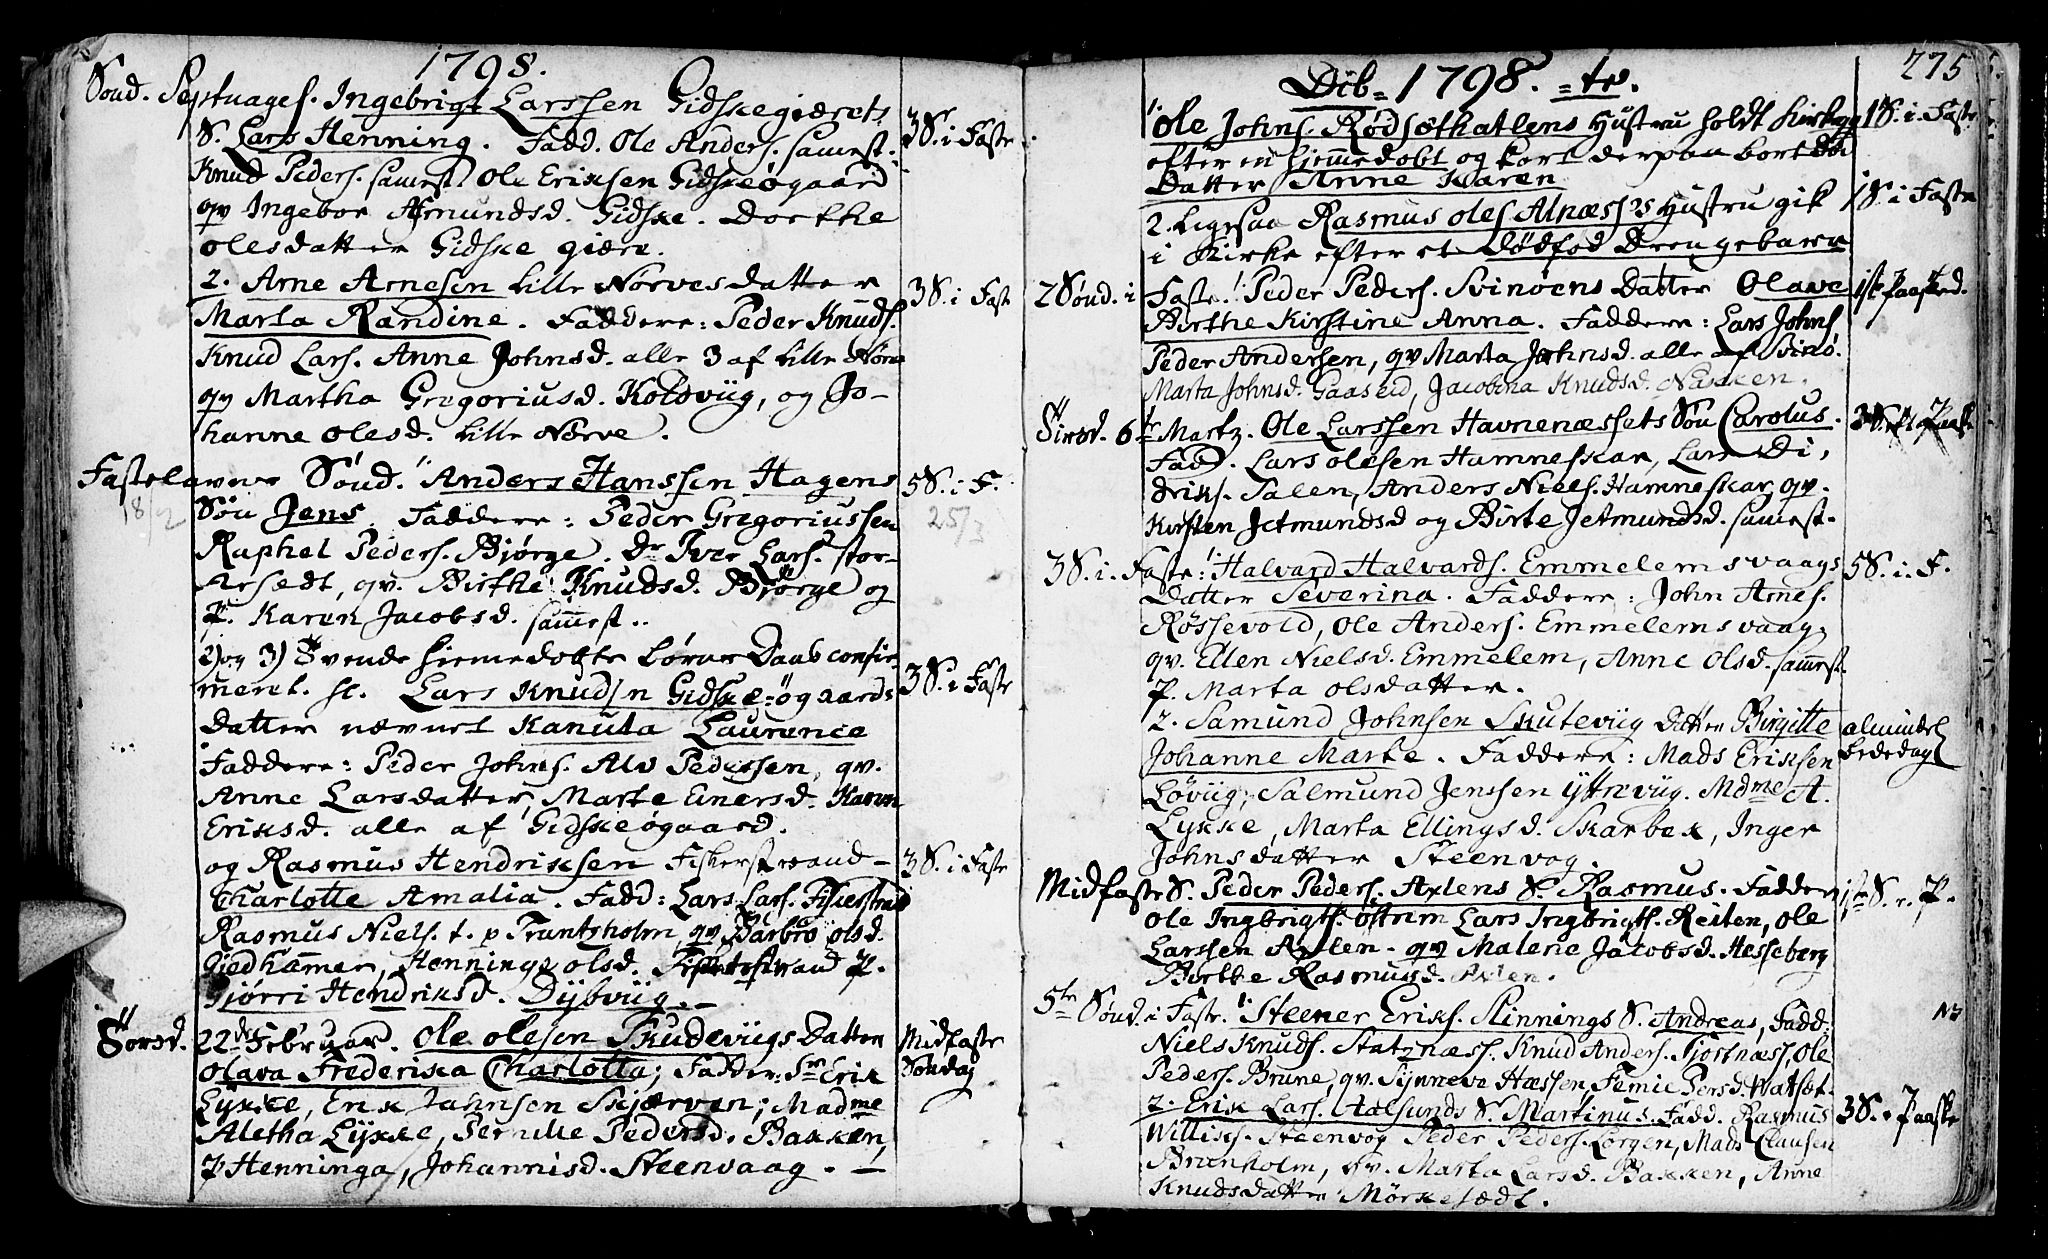 1798.
Sønd. Septuages. Ingebrigt Larssen Gidskegiærets
S. Lars Henning. Fadd. Ole Anders. samest. 3 S. i Faste
Knud Peders. samest. Ole Eriksen Gidskeøgaard
qv Ingebor Asmundsd. Gidske. Dorthe
olesdatter Gidske giære.
2. Arne Arnesen Lille Nørves datter 3 S. i Faste
Marta Randine. Faddere: Peder Knuds.
Knud Lars. Anne Johnsd. alle 3 af Lille Nørve
qv Martha Gregoriusd. Kolsviig, og Jo-
hanne olesd. Lille Nørve.
Fastelavns Sønd. 1. Anders Hanssen Hagens 5 S. i F.
18/2 Søn Jens. Faddere: Peder Gregoriussen 25/3
Raphel Peders. Bjørge. Dr Iver Lars. stor-
sædt, qv. Birthe Knudsd. Bjørge og
P. Karen Jacobsd. samest.
2) og 3) Tvende hiemedøbte børns Daab confir-
meret. sc. Lars Knudsn Gidske-øgaards 3 S. i Faste
datter nævnt Kanuta Laurence
Faddere: Peder Johns. Alv Pedersen, qv.
Anne Larsdatter, Marte Einersd. Karen
Eriksd. alle af Gidskeøgaard.
og Rasmus Hendriksen Fiskerstrand- 3 S. i Faste
Charlotte Amalia. Fadd: Lars Lars. Fiskerstrand
Rasmus Niels. t. p Trantsholm, qv Barbro olsd.
Giedhammer, Henninge olsd. Fiskerstrand P.
Giørri Hendriksd. Dybviig.
Tirsd. 22de Februar. Ole olesen Skudeviigs Datter Midfaste
Olava Frederika Charlotta; Fadder: Sr Erik Søndag
Lykke, Erik Johnsen Skjærven; Madme
Aletha Lykke, Pernille Pedersd. Bakken,
P Henninga, Johannisd. Steenvaag.
Døb- 1798. -te. 275
1. Ole Johns. Rødsethatlens Hustru holdt Kirkeg 1 S. i Faste
efter en hjemmedøbt og kort derpaa bortdød
Datter Anne Karen
2. Ligesaa Rasmus oles Alnæss's Hustru gik 1 S. i Faste
i Kirke efter et dødfød Drengebarn
2 Sønd. i Faste. 1. Peder Peders. Svinøens Datter Olave 1ste Paasked.
Birthe Kirstine Anna. Faddere: Lars Johns.
Peder Andersen, qv Marta Johnsd. alle af Svinø.
Marta Johnsd. Gaaseid, Jacobina Knudsd. Nakken.
Tirsd. 6te Martz. Ole Larssen Havnenæssets Søn Carolus. 3 S. e. Paaske
Fadd. Lars olesen Hamneskar, Lars Di,
driks. Salen, Anders Niels. Hamneskar, qv.
Kirsten Jetmundsd og Birte Jetmundsd. samest.
3 S. i. Faste. 1. Halvard Halvards. Emmelemsvaags 5 S. i. F.
Datter Severina. Faddere: John Arnes.
Røssevold, Ole Anders. Emmelemsvaag,
qv. Ellen Nielsd. Emmelem, Anne Olsd. samest.
P. Marta olsdatter.
2. Samund Johnsen Skuteviig Datter Birgitte almindel
Johanne Marte. Faddere: Mads Eriksen Bededag
Løviig, Salmund Jenssen Ytreviig. Mdme A.
Lykke, Marta Ellingsd. Skarbek, Inger
Johnsdatter Steenvog.
Midfaste S. Peder Peders. Axlens S. Rasmus. Fadder 1ste S. e. P.
Ole Ingbrigts. østrim Lars Ingbrigts. Reiten, Ole
Larssen Axlen. qv Malene Jacobsd. Hesseberg
Birthe Rasmusd. Axlen.
5te Sønd. i Faste. 1. Steener Eriks. Slinnings S. Andreas, Fadd:
Niels Knuds. Statznæss. Knud Anders. Fjortnæss, Ole
Peders. Brune, qv. Synneve Hæssen, Femie Persd. Watsæt.
2. Erik Lars. Aalsunds S. Martinus. Fadd. Rasmus 3 S. e Paaske
Williks. Steenvog Peder Peders. Lorgen, Mads Clausen
Brunholm, qv. Marta Larsd. Bakken, Anne
Knudsdatter Mørkesædt.